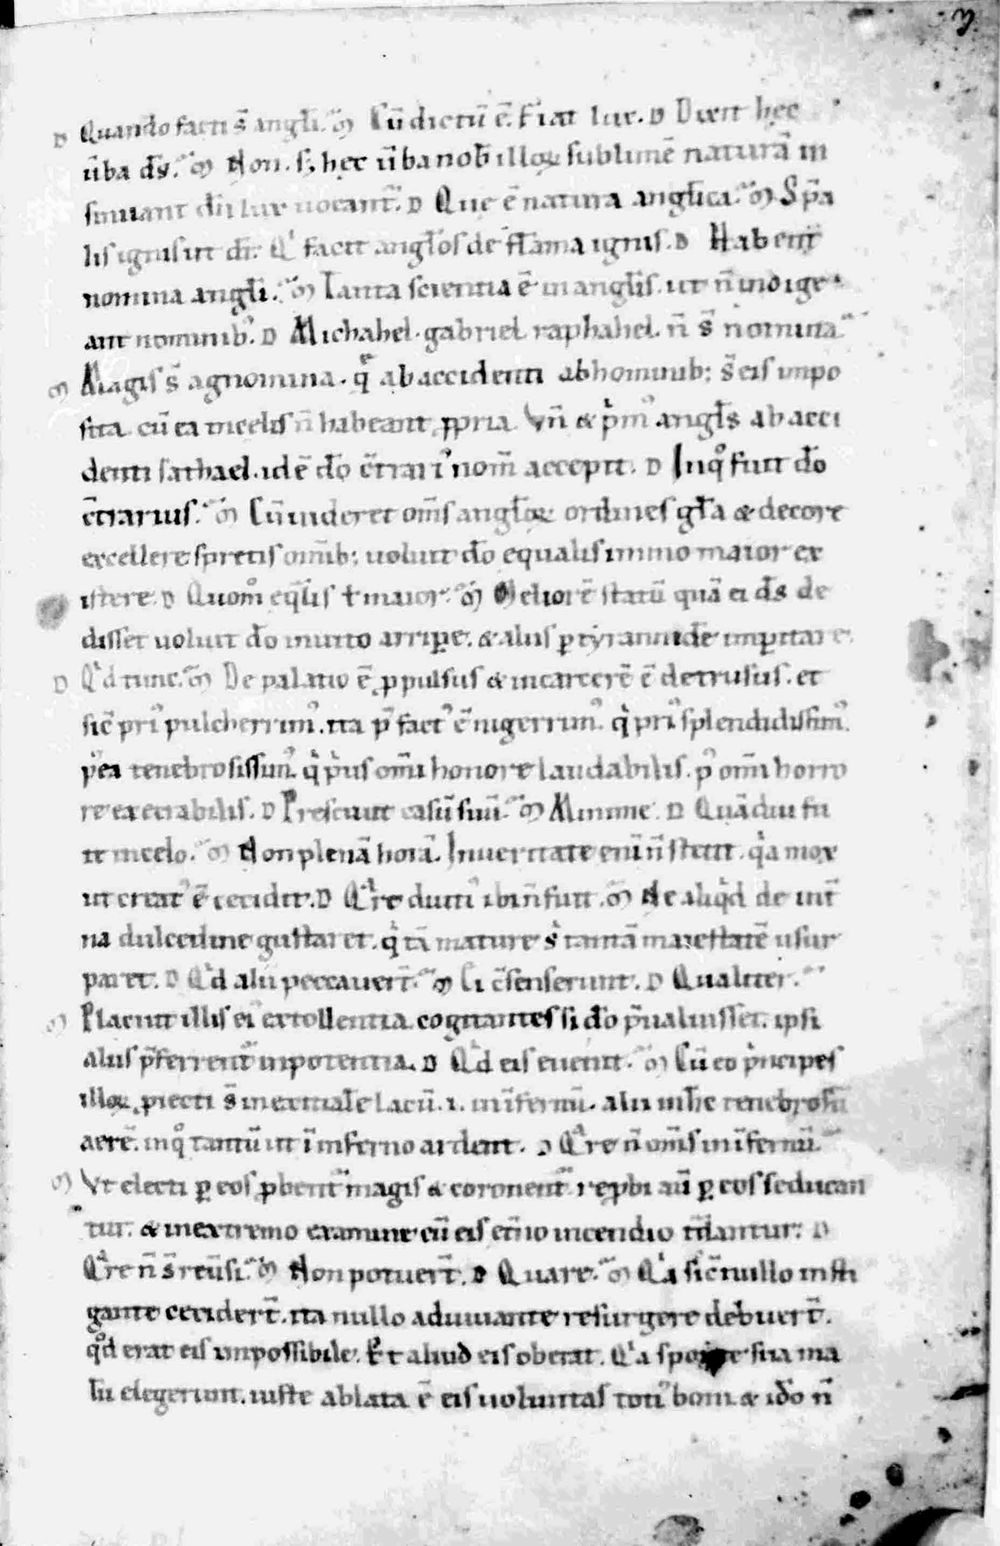 3
D Quando facti s̄ angl̄i. M̄ Cū dictū ē. Fiat lux. D Dixit hec
ūba d̄s. M̄ Non. s; hec ūba nob̄ illoꝝ sublimē naturā in
sinuant dū lux uocant᷑. D Que ē natura angl̄ica. M̄ Sp̄a
lis ignis ut dr̄. Qͥ facit angl̄os de fl̄ama ignis. D Habent
nomina angl̄i. M̄ Tanta scientia ē in angl̄is. ut n̄ indige
ant nominibꝰ. D Michahel. gabriel raphahel. n̄ s̄ nomina.
M̄ Magis s̄ agnomina. q̄ ab accidenti ab hominib; s̄ eis inpo
sita cū ea in celis n̄ habeant ꝓpria. Vn̄ & pͥmꝰ angl̄s ab acci
denti sathael. id ē d̄o c̄trariꝰ nom̄ accepit. D Inqͦ fuit d̄o
c̄trarius. M̄ Cū uideret om̄s angl̄oꝝ ordines gl̄a & decore
excellere spretis omīb; uoluit d̄o equalis immo maior ex
istere. D Quom̊ eq̄lis ł maior. M̄ Meliorē statū quā ei d̄s de
disset uoluit d̄o inuito arripe. & aliis ꝑ tyrannidē imꝑitare.
D Qͥd tunc. M̄ De palatio ē ꝓpulsus & in carcerē ē detrusus. et
sic̄ priꝰ pulcherrimꝰ. ita pꝰ factꝰ ē nigerrimꝰ. qͥ priꝰ splendidissimꝰ.
pꝰea tenebrosissimꝰ. qͥ pͥus om̄i honore laudabilis. pꝰ om̄i horro
re execrabilis. D Presciuit casū suū. M̄ Minime. D Quādiu fu
it in celo. M̄ Non plenā horā. In ueritate enī n̄ stetit. qͥa mox
ut creatꝰ ē cecidit. D Qͣre diutiꝰ ibi n̄ fuit. M̄ Ne aliqͥd de int̄
na dulcedine gustaret. qͥ tā mature sͥ tantā maiestatē usur
paret. D Qͥd alii peccauer̄t. M̄ Ei c̄senserunt. D Qualiter.
M̄ Placuit illis eiꝰ extollentia cogitantes si d̄o p̄ualuisset. ipsi
aliis p̄ferrent᷑ in potentia. D Qͥd eis euenit. M̄ Cū eo pͥncipes
illoꝝ ꝓiecti s̄ in extitialē lacū. i. in īfernū. alii in hc̄ tenebrosū
aerē. inqͦ tantū ut ī inferno ardent. D Qͣre n̄ om̄s in īfernū.
M̄ Vt electi ꝑ eos ꝓbent᷑ magis & coronent᷑. reꝓbi aū ꝑ eos seducan
tur. & in extremo examine cū eis et̄no incendio t̄dantur. D
Qͣre n̄ s̄ reūsi. M̄ Non potuer̄t. D Quare. M̄ Qͥa sic̄ nullo insti
gante cecider̄t. ita nullo adiuuante resurgere debuer̄t.
qͦd erat eis inpossibile. Et aliud eis oberat. Qͥa sponte sua ma
lū elegerunt. iuste ablata ē eis uoluntas totiꝰ boni. & id̄o n̄